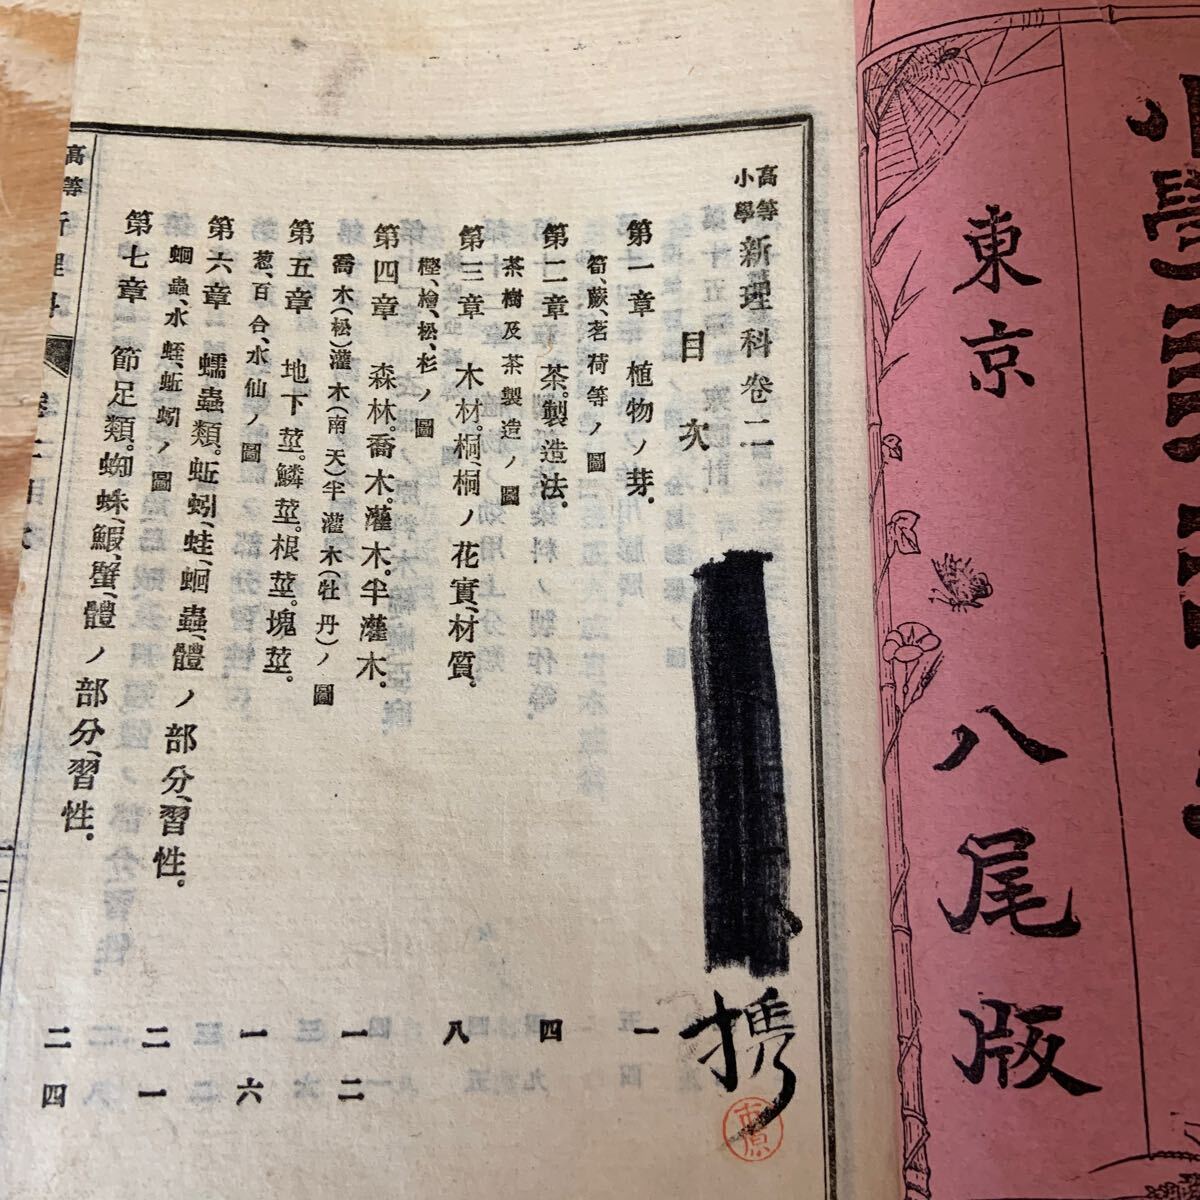 東京
八尾版
高等
小學
新理科卷二
目次
第一章 植物ノ芽。 一
筍、蕨、茗荷等ノ圖
第二章 茶。製造法。 四
茶樹及茶製造ノ圖
第三章 木材。桐、桐ノ花實、材質。 八
樫、檜、松、杉ノ圖
第四章 森林。喬木。灌木。半灌木。 一二
喬木(松)灌木(南天)半灌木(牡丹)ノ圖
第五章 地下莖。鱗莖。根莖。塊莖。 一六
葱、百合、水仙ノ圖
第六章 蠕蟲類。蚯蚓、蛭、蛔蟲、體ノ部分、習性。 二一
蛔蟲、水蛭、蚯蚓ノ圖
第七章 節足類。蜘蛛、鰕、蟹、體ノ部分、習性。 二四
携
市原
高等